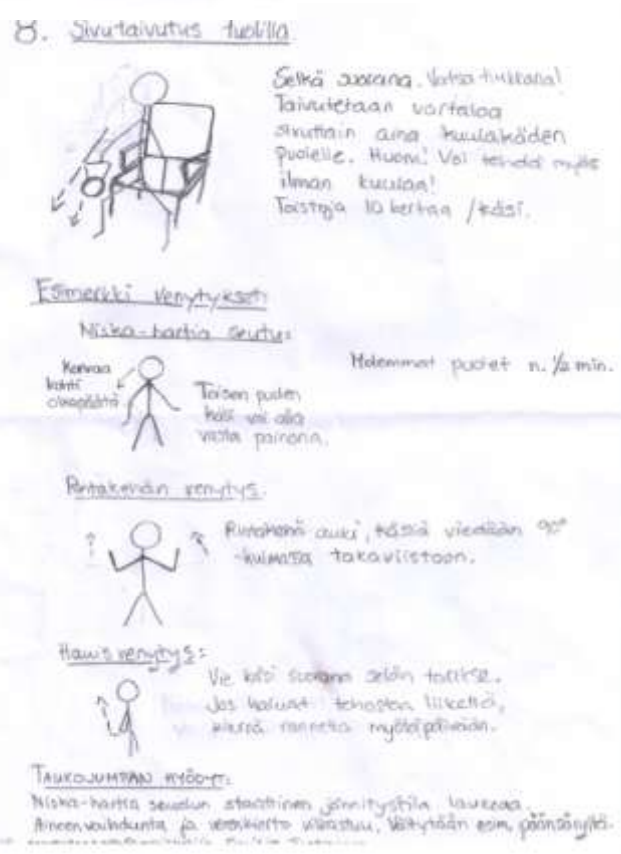 8. Sivutaivutus tuolilla
Selkä suorana. Vatsa tiukkana!
Taivutetaan vartaloa
sivuttain aina kuulakäden
puolelle. Huom! Voi tehdä myös
ilman kuulaa!
Toistoja 10 kertaa /käsi.
Esimerkki venytykset:
Niska-hartia seutu:
Korvaa
kohti
olkapäätä
Toisen puolen
käsi voi olla
vasta painona.
Molemmat puolet n. ½ min.
Rintakehän venytys:
Rintakehä auki, käsiä viedään 90°
-kulmassa takaviistoon.
Hauis venytys:
Vie käsi suorana selän taakse.
Jos haluat tehostaa liikettä,
kierrä rannetta myötäpäivään.
TAUKOJUMPAN HYÖDYT:
Niska-hartia seudun staattinen jännitystila laukeaa.
Aineenvaihdunta ja verenkierto vilkastuu, vältytään esim. päänsäryltä.